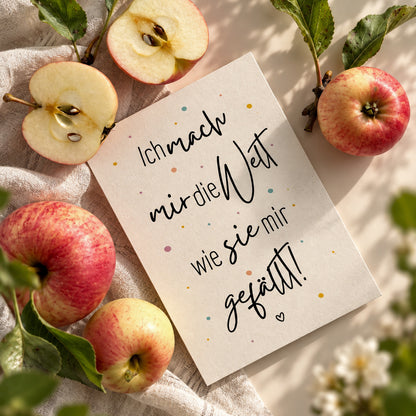 Ich mach
mir die Welt
wie sie mir
gefällt!